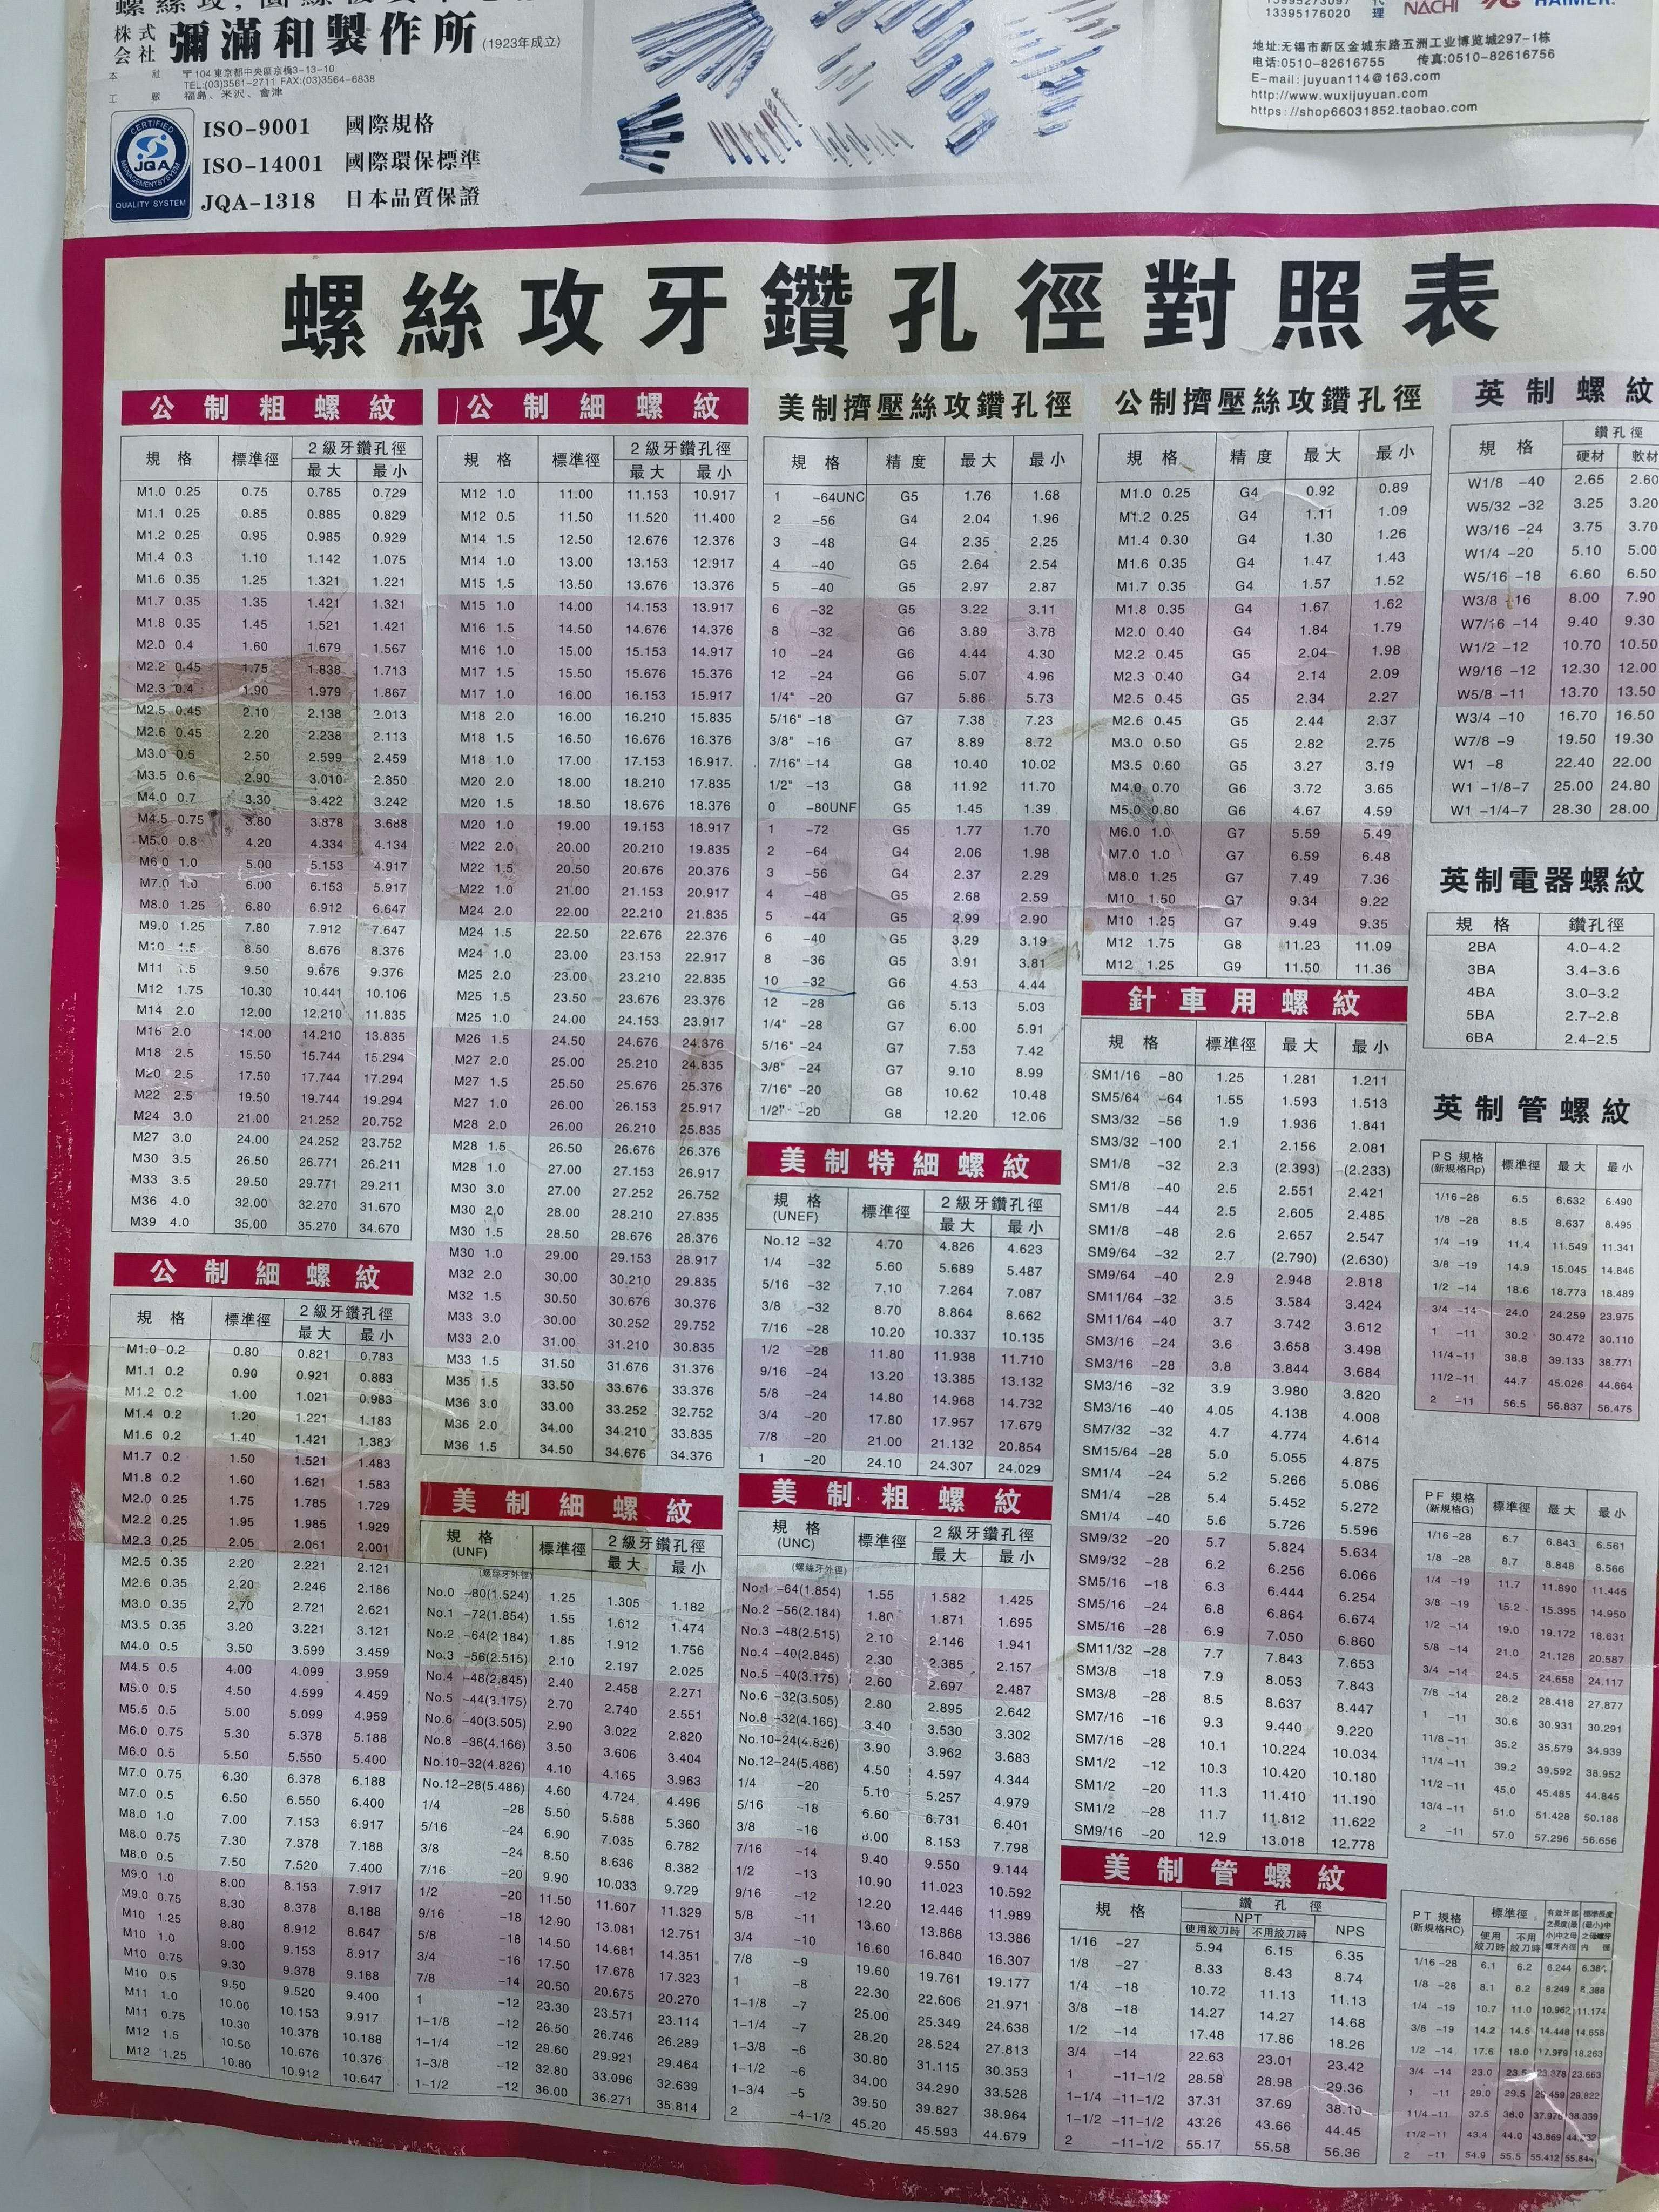 株式会社 彌滿和製作所 (1923年成立)
本社 〒104 東京都中央區京橋3-13-10
TEL:(03)3561-2711 FAX:(03)3564-6838
工廠 福島、米沢、會津
CERTIFIED
JQA
MANAGEMENT SYSTEM
QUALITY SYSTEM
ISO-9001 國際規格
ISO-14001 國際環保標準
JQA-1318 日本品質保證
13395176020
代理 NACHI HAIMER.
地址:无锡市新区金城东路五洲工业博览城297-1栋
电话:0510-82616755 传真:0510-82616756
E-mail:juyuan114@163.com
http://www.wuxijuyuan.com
https://shop66031852.taobao.com
螺絲攻牙鑽孔徑對照表
公制粗螺紋
規格 標準徑 2級牙鑽孔徑
最大 最小
M1.0 0.25 0.75 0.785 0.729
M1.1 0.25 0.85 0.885 0.829
M1.2 0.25 0.95 0.985 0.929
M1.4 0.3 1.10 1.142 1.075
M1.6 0.35 1.25 1.321 1.221
M1.7 0.35 1.35 1.421 1.321
M1.8 0.35 1.45 1.521 1.421
M2.0 0.4 1.60 1.679 1.567
M2.2 0.45 1.75 1.838 1.713
M2.3 0.4 1.90 1.979 1.867
M2.5 0.45 2.10 2.138 2.013
M2.6 0.45 2.20 2.238 2.113
M3.0 0.5 2.50 2.599 2.459
M3.5 0.6 2.90 3.010 2.850
M4.0 0.7 3.30 3.422 3.242
M4.5 0.75 3.80 3.878 3.688
M5.0 0.8 4.20 4.334 4.134
M6.0 1.0 5.00 5.153 4.917
M7.0 1.0 6.00 6.153 5.917
M8.0 1.25 6.80 6.912 6.647
M9.0 1.25 7.80 7.912 7.647
M10 1.5 8.50 8.676 8.376
M11 1.5 9.50 9.676 9.376
M12 1.75 10.30 10.441 10.106
M14 2.0 12.00 12.210 11.835
M16 2.0 14.00 14.210 13.835
M18 2.5 15.50 15.744 15.294
M20 2.5 17.50 17.744 17.294
M22 2.5 19.50 19.744 19.294
M24 3.0 21.00 21.252 20.752
M27 3.0 24.00 24.252 23.752
M30 3.5 26.50 26.771 26.211
M33 3.5 29.50 29.771 29.211
M36 4.0 32.00 32.270 31.670
M39 4.0 35.00 35.270 34.670
公制細螺紋
規格 標準徑 2級牙鑽孔徑
最大 最小
M1.0 0.2 0.80 0.821 0.783
M1.1 0.2 0.90 0.921 0.883
M1.2 0.2 1.00 1.021 0.983
M1.4 0.2 1.20 1.221 1.183
M1.6 0.2 1.40 1.421 1.383
M1.7 0.2 1.50 1.521 1.483
M1.8 0.2 1.60 1.621 1.583
M2.0 0.25 1.75 1.785 1.729
M2.2 0.25 1.95 1.985 1.929
M2.3 0.25 2.05 2.061 2.001
M2.5 0.35 2.20 2.221 2.121
M2.6 0.35 2.20 2.246 2.186
M3.0 0.35 2.70 2.721 2.621
M3.5 0.35 3.20 3.221 3.121
M4.0 0.5 3.50 3.599 3.459
M4.5 0.5 4.00 4.099 3.959
M5.0 0.5 4.50 4.599 4.459
M5.5 0.5 5.00 5.099 4.959
M6.0 0.75 5.30 5.378 5.188
M6.0 0.5 5.50 5.550 5.400
M7.0 0.75 6.30 6.378 6.188
M7.0 0.5 6.50 6.550 6.400
M8.0 1.0 7.00 7.153 6.917
M8.0 0.75 7.30 7.378 7.188
M8.0 0.5 7.50 7.520 7.400
M9.0 1.0 8.00 8.153 7.917
M9.0 0.75 8.30 8.378 8.188
M10 1.25 8.80 8.912 8.647
M10 1.0 9.00 9.153 8.917
M10 0.75 9.30 9.378 9.188
M10 0.5 9.50 9.520 9.400
M11 1.0 10.00 10.153 9.917
M11 0.75 10.30 10.378 10.188
M12 1.5 10.50 10.676 10.376
M12 1.25 10.80 10.912 10.647
公制細螺紋
規格 標準徑 2級牙鑽孔徑
最大 最小
M12 1.0 11.00 11.153 10.917
M12 0.5 11.50 11.520 11.400
M14 1.5 12.50 12.676 12.376
M14 1.0 13.00 13.153 12.917
M15 1.5 13.50 13.676 13.376
M15 1.0 14.00 14.153 13.917
M16 1.5 14.50 14.676 14.376
M16 1.0 15.00 15.153 14.917
M17 1.5 15.50 15.676 15.376
M17 1.0 16.00 16.153 15.917
M18 2.0 16.00 16.210 15.835
M18 1.5 16.50 16.676 16.376
M18 1.0 17.00 17.153 16.917
M20 2.0 18.00 18.210 17.835
M20 1.5 18.50 18.676 18.376
M20 1.0 19.00 19.153 18.917
M22 2.0 20.00 20.210 19.835
M22 1.5 20.50 20.676 20.376
M22 1.0 21.00 21.153 20.917
M24 2.0 22.00 22.210 21.835
M24 1.5 22.50 22.676 22.376
M24 1.0 23.00 23.153 22.917
M25 2.0 23.00 23.210 22.835
M25 1.5 23.50 23.676 23.376
M25 1.0 24.00 24.153 23.917
M26 1.5 24.50 24.676 24.376
M27 2.0 25.00 25.210 24.835
M27 1.5 25.50 25.676 25.376
M27 1.0 26.00 26.153 25.917
M28 2.0 26.00 26.210 25.835
M28 1.5 26.50 26.676 26.376
M28 1.0 27.00 27.153 26.917
M30 3.0 27.00 27.252 26.752
M30 2.0 28.00 28.210 27.835
M30 1.5 28.50 28.676 28.376
M30 1.0 29.00 29.153 28.917
M32 2.0 30.00 30.210 29.835
M32 1.5 30.50 30.676 30.376
M33 3.0 30.00 30.252 29.752
M33 2.0 31.00 31.210 30.835
M33 1.5 31.50 31.676 31.376
M35 1.5 33.50 33.676 33.376
M36 3.0 33.00 33.252 32.752
M36 2.0 34.00 34.210 33.835
M36 1.5 34.50 34.676 34.376
美制細螺紋
規格 (UNF) 標準徑 2級牙鑽孔徑
最大 最小
(螺絲牙外徑)
No.0 -80(1.524) 1.25 1.305 1.182
No.1 -72(1.854) 1.55 1.612 1.474
No.2 -64(2.184) 1.85 1.912 1.756
No.3 -56(2.515) 2.10 2.197 2.025
No.4 -48(2.845) 2.40 2.458 2.271
No.5 -44(3.175) 2.70 2.740 2.551
No.6 -40(3.505) 2.90 3.022 2.820
No.8 -36(4.166) 3.50 3.606 3.404
No.10-32(4.826) 4.10 4.165 3.963
No.12-28(5.486) 4.60 4.724 4.496
1/4 -28 5.50 5.588 5.360
5/16 -24 6.90 7.035 6.782
3/8 -24 8.50 8.636 8.382
7/16 -20 9.90 10.033 9.729
1/2 -20 11.50 11.607 11.329
9/16 -18 12.90 13.081 12.751
5/8 -18 14.50 14.681 14.351
3/4 -16 17.50 17.678 17.323
7/8 -14 20.50 20.675 20.270
1 -12 23.30 23.571 23.114
1-1/8 -12 26.50 26.746 26.289
1-1/4 -12 29.60 29.921 29.464
1-3/8 -12 32.80 33.096 32.639
1-1/2 -12 36.00 36.271 35.814
美制擠壓絲攻鑽孔徑
規格 精度 最大 最小
1 -64UNC G5 1.76 1.68
2 -56 G4 2.04 1.96
3 -48 G4 2.35 2.25
4 -40 G5 2.64 2.54
5 -40 G5 2.97 2.87
6 -32 G5 3.22 3.11
8 -32 G6 3.89 3.78
10 -24 G6 4.44 4.30
12 -24 G6 5.07 4.96
1/4" -20 G7 5.86 5.73
5/16" -18 G7 7.38 7.23
3/8" -16 G7 8.89 8.72
7/16" -14 G8 10.40 10.02
1/2" -13 G8 11.92 11.70
0 -80UNF G5 1.45 1.39
1 -72 G5 1.77 1.70
2 -64 G4 2.06 1.98
3 -56 G4 2.37 2.29
4 -48 G5 2.68 2.59
5 -44 G5 2.99 2.90
6 -40 G5 3.29 3.19
8 -36 G5 3.91 3.81
10 -32 G6 4.53 4.44
12 -28 G6 5.13 5.03
1/4" -28 G7 6.00 5.91
5/16" -24 G7 7.53 7.42
3/8" -24 G7 9.10 8.99
7/16" -20 G8 10.62 10.48
1/2" -20 G8 12.20 12.06
美制特細螺紋
規格 (UNEF) 標準徑 2級牙鑽孔徑
最大 最小
No.12 -32 4.70 4.826 4.623
1/4 -32 5.60 5.689 5.487
5/16 -32 7.10 7.264 7.087
3/8 -32 8.70 8.864 8.662
7/16 -28 10.20 10.337 10.135
1/2 -28 11.80 11.938 11.710
9/16 -24 13.20 13.385 13.132
5/8 -24 14.80 14.968 14.732
3/4 -20 17.80 17.957 17.679
7/8 -20 21.00 21.132 20.854
1 -20 24.10 24.307 24.029
美制粗螺紋
規格 (UNC) 標準徑 2級牙鑽孔徑
最大 最小
(螺絲牙外徑)
No.1 -64(1.854) 1.55 1.582 1.425
No.2 -56(2.184) 1.80 1.871 1.695
No.3 -48(2.515) 2.10 2.146 1.941
No.4 -40(2.845) 2.30 2.385 2.157
No.5 -40(3.175) 2.60 2.697 2.487
No.6 -32(3.505) 2.80 2.895 2.642
No.8 -32(4.166) 3.40 3.530 3.302
No.10-24(4.826) 3.90 3.962 3.683
No.12-24(5.486) 4.50 4.597 4.344
1/4 -20 5.10 5.257 4.979
5/16 -18 6.60 6.731 6.401
3/8 -16 8.00 8.153 7.798
7/16 -14 9.40 9.550 9.144
1/2 -13 10.90 11.023 10.592
9/16 -12 12.20 12.446 11.989
5/8 -11 13.60 13.868 13.386
3/4 -10 16.60 16.840 16.307
7/8 -9 19.60 19.761 19.177
1 -8 22.30 22.606 21.971
1-1/8 -7 25.00 25.349 24.638
1-1/4 -7 28.20 28.524 27.813
1-3/8 -6 30.80 31.115 30.353
1-1/2 -6 34.00 34.290 33.528
1-3/4 -5 39.50 39.827 38.964
2 -4-1/2 45.20 45.593 44.679
公制擠壓絲攻鑽孔徑
規格 精度 最大 最小
M1.0 0.25 G4 0.92 0.89
M1.2 0.25 G4 1.11 1.09
M1.4 0.30 G4 1.30 1.26
M1.6 0.35 G4 1.47 1.43
M1.7 0.35 G4 1.57 1.52
M1.8 0.35 G4 1.67 1.62
M2.0 0.40 G4 1.84 1.79
M2.2 0.45 G5 2.04 1.98
M2.3 0.40 G4 2.14 2.09
M2.5 0.45 G5 2.34 2.27
M2.6 0.45 G5 2.44 2.37
M3.0 0.50 G5 2.82 2.75
M3.5 0.60 G5 3.27 3.19
M4.0 0.70 G6 3.72 3.65
M5.0 0.80 G6 4.67 4.59
M6.0 1.0 G7 5.59 5.49
M7.0 1.0 G7 6.59 6.48
M8.0 1.25 G7 7.49 7.36
M10 1.50 G7 9.34 9.22
M10 1.25 G7 9.49 9.35
M12 1.75 G8 11.23 11.09
M12 1.25 G9 11.50 11.36
針車用螺紋
規格 標準徑 最大 最小
SM1/16 -80 1.25 1.281 1.211
SM5/64 -64 1.55 1.593 1.513
SM3/32 -56 1.9 1.936 1.841
SM3/32 -100 2.1 2.156 2.081
SM1/8 -32 2.3 (2.393) (2.233)
SM1/8 -40 2.5 2.551 2.421
SM1/8 -44 2.5 2.605 2.485
SM1/8 -48 2.6 2.657 2.547
SM9/64 -32 2.7 (2.790) (2.630)
SM9/64 -40 2.9 2.948 2.818
SM11/64 -32 3.5 3.584 3.424
SM11/64 -40 3.7 3.742 3.612
SM3/16 -24 3.6 3.658 3.498
SM3/16 -28 3.8 3.844 3.684
SM3/16 -32 3.9 3.980 3.820
SM3/16 -40 4.05 4.138 4.008
SM7/32 -32 4.7 4.774 4.614
SM15/64 -28 5.0 5.055 4.875
SM1/4 -24 5.2 5.266 5.086
SM1/4 -28 5.4 5.452 5.272
SM1/4 -40 5.6 5.726 5.596
SM9/32 -20 5.7 5.824 5.634
SM9/32 -28 6.2 6.256 6.066
SM5/16 -18 6.3 6.444 6.254
SM5/16 -24 6.8 6.864 6.674
SM5/16 -28 6.9 7.050 6.860
SM11/32 -28 7.7 7.843 7.653
SM3/8 -18 7.9 8.053 7.843
SM3/8 -28 8.5 8.637 8.447
SM7/16 -16 9.3 9.440 9.220
SM7/16 -28 10.1 10.224 10.034
SM1/2 -12 10.3 10.420 10.180
SM1/2 -20 11.3 11.410 11.190
SM1/2 -28 11.7 11.812 11.622
SM9/16 -20 12.9 13.018 12.778
美制管螺紋
規格 鑽孔徑
NPT NPS
使用絞刀時 不用絞刀時
1/16 -27 5.94 6.15 6.35
1/8 -27 8.33 8.43 8.74
1/4 -18 10.72 11.13 11.13
3/8 -18 14.27 14.27 14.68
1/2 -14 17.48 17.86 18.26
3/4 -14 22.63 23.01 23.42
1 -11-1/2 28.58 28.98 29.36
1-1/4 -11-1/2 37.31 37.69 38.10
1-1/2 -11-1/2 43.26 43.66 44.45
2 -11-1/2 55.17 55.58 56.36
英制螺紋
規格 鑽孔徑
硬材 軟材
W1/8 -40 2.65 2.60
W5/32 -32 3.25 3.20
W3/16 -24 3.75 3.70
W1/4 -20 5.10 5.00
W5/16 -18 6.60 6.50
W3/8 -16 8.00 7.90
W7/16 -14 9.40 9.30
W1/2 -12 10.70 10.50
W9/16 -12 12.30 12.00
W5/8 -11 13.70 13.50
W3/4 -10 16.70 16.50
W7/8 -9 19.50 19.30
W1 -8 22.40 22.00
W1 -1/8-7 25.00 24.80
W1 -1/4-7 28.30 28.00
英制電器螺紋
規格 鑽孔徑
2BA 4.0-4.2
3BA 3.4-3.6
4BA 3.0-3.2
5BA 2.7-2.8
6BA 2.4-2.5
英制管螺紋
PS 規格 (新規格Rp) 標準徑 最大 最小
1/16 -28 6.5 6.632 6.490
1/8 -28 8.5 8.637 8.495
1/4 -19 11.4 11.549 11.341
3/8 -19 14.9 15.045 14.846
1/2 -14 18.6 18.773 18.489
3/4 -14 24.0 24.259 23.975
1 -11 30.2 30.472 30.110
11/4 -11 38.8 39.133 38.771
11/2 -11 44.7 45.026 44.664
2 -11 56.5 56.837 56.475
PF 規格 (新規格G) 標準徑 最大 最小
1/16 -28 6.7 6.843 6.561
1/8 -28 8.7 8.848 8.566
1/4 -19 11.7 11.890 11.445
3/8 -19 15.2 15.395 14.950
1/2 -14 19.0 19.172 18.631
5/8 -14 21.0 21.128 20.587
3/4 -14 24.5 24.658 24.117
7/8 -14 28.2 28.418 27.877
1 -11 30.6 30.931 30.291
11/8 -11 35.2 35.579 34.939
11/4 -11 39.2 39.592 38.952
11/2 -11 45.0 45.485 44.845
13/4 -11 51.0 51.428 50.188
2 -11 57.0 57.296 56.656
PT 規格 (新規格RC) 標準徑
使用絞刀時 不用絞刀時
1/16 -28 6.1 6.2 6.244
1/8 -28 8.1 8.2 8.249 8.388
1/4 -19 10.7 11.0 10.962 11.174
3/8 -19 14.2 14.5 14.448 14.658
1/2 -14 17.6 18.0 17.979 18.263
3/4 -14 23.0 23.5 23.378 23.663
1 -11 29.0 29.5 29.459 29.822
11/4 -11 37.5 38.0 37.976 38.339
11/2 -11 43.4 44.0 43.869 44.232
2 -11 54.9 55.5 55.412 55.844